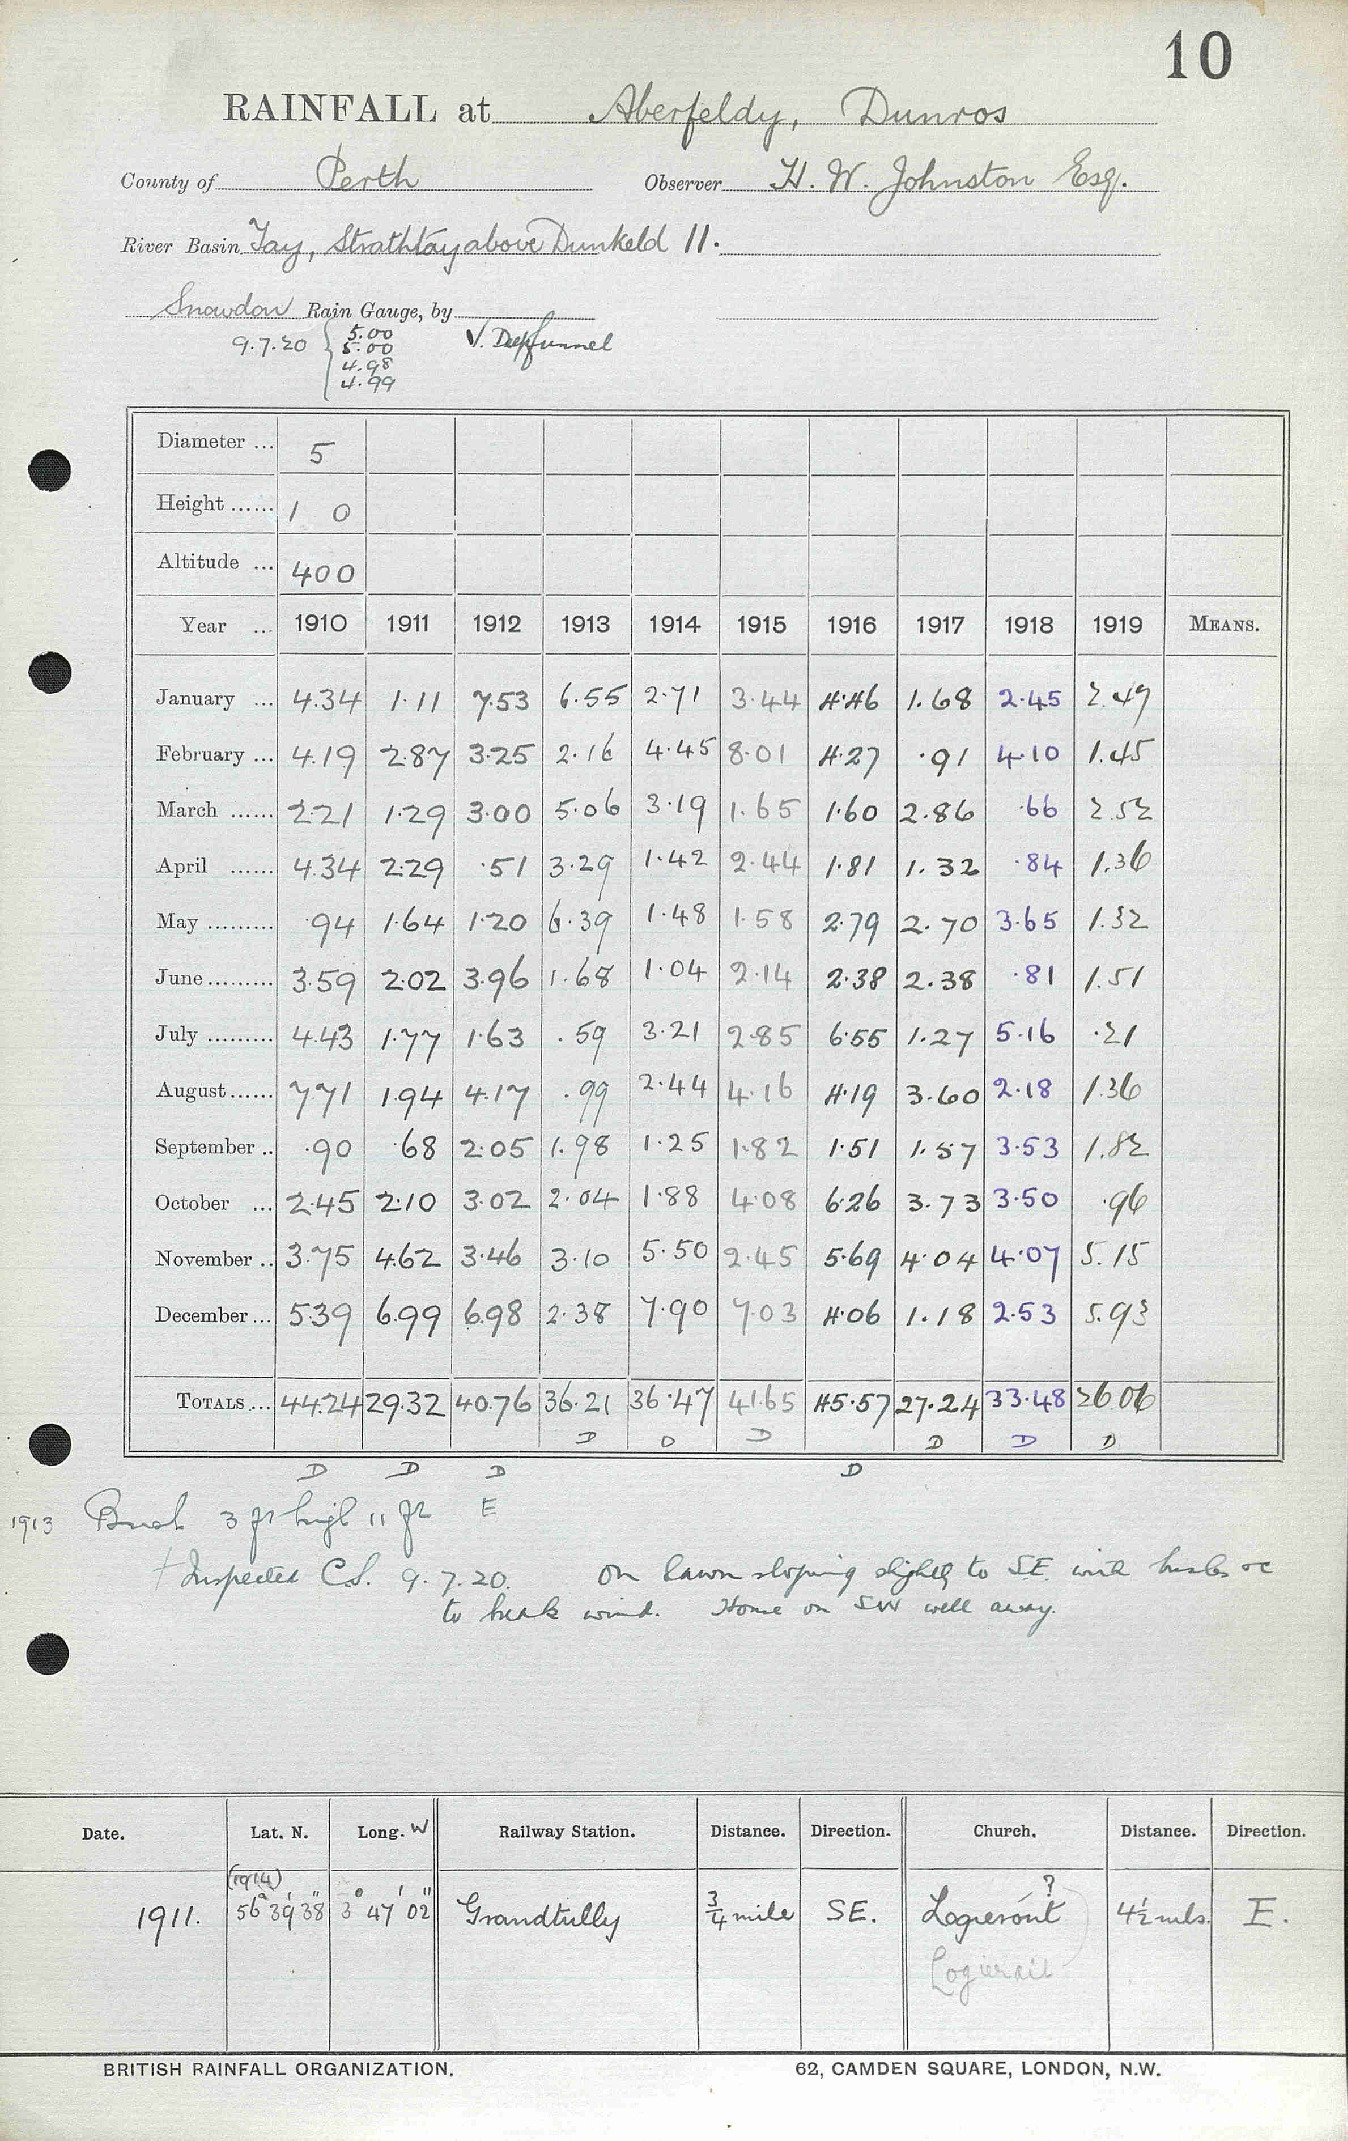 10
RAINFALL at Aberfeldy, Dunros
County of Perth Observer H. W. Johnston Esq.
River Basin Tay, Strathtay above Dunkeld 11.
Snowdon Rain Gauge, by
9.7.20 { 5.00 V. Deep funnel
5.00
4.98
4.99
Diameter ... 5
Height ...... 1 0
Altitude ... 400
Year ... 1910 1911 1912 1913 1914 1915 1916 1917 1918 1919 MEANS.
January ... 4.34 1.11 7.53 6.55 2.71 3.44 4.46 1.68 2.45 2.49
February ... 4.19 2.87 3.25 2.16 4.45 8.01 4.27 .91 4.10 1.45
March ...... 2.21 1.29 3.00 5.06 3.19 1.65 1.60 2.86 .66 2.52
April ...... 4.34 2.29 .51 3.29 1.42 2.44 1.81 1.32 .84 1.36
May ......... .94 1.64 1.20 6.39 1.48 1.58 2.79 2.70 3.65 1.32
June ......... 3.59 2.02 3.96 1.68 1.04 2.14 2.38 2.38 .81 1.51
July ......... 4.43 1.77 1.63 .59 3.21 2.85 6.55 1.27 5.16 .21
August ...... 7.71 1.94 4.17 .99 2.44 4.16 4.19 3.60 2.18 1.36
September .. .90 .68 2.05 1.98 1.25 1.82 1.51 1.57 3.53 1.82
October ... 2.45 2.10 3.02 2.04 1.88 4.08 6.26 3.73 3.50 .96
November .. 3.75 4.62 3.46 3.10 5.50 2.45 5.69 4.04 4.07 5.15
December ... 5.39 6.99 6.98 2.38 7.90 7.03 4.06 1.18 2.53 5.93
TOTALS ... 44.24 29.32 40.76 36.21 36.47 41.65 45.57 27.24 33.48 26.06
D D D D D D
D D D D
1913 Bush 3 ft high 11 ft E
† Inspected C.S. 9.7.20. On lawn sloping slightly to SE with bushes &c
to break wind. House on SW well away.
Date. Lat. N. Long. W Railway Station. Distance. Direction. Church. Distance. Direction.
(1914) ?
1911. 56° 39' 38" 3° 47' 02" Grandtully 3/4 mile SE. Logieront 4½ mls. E.
Logierait
BRITISH RAINFALL ORGANIZATION. 62, CAMDEN SQUARE, LONDON, N.W.